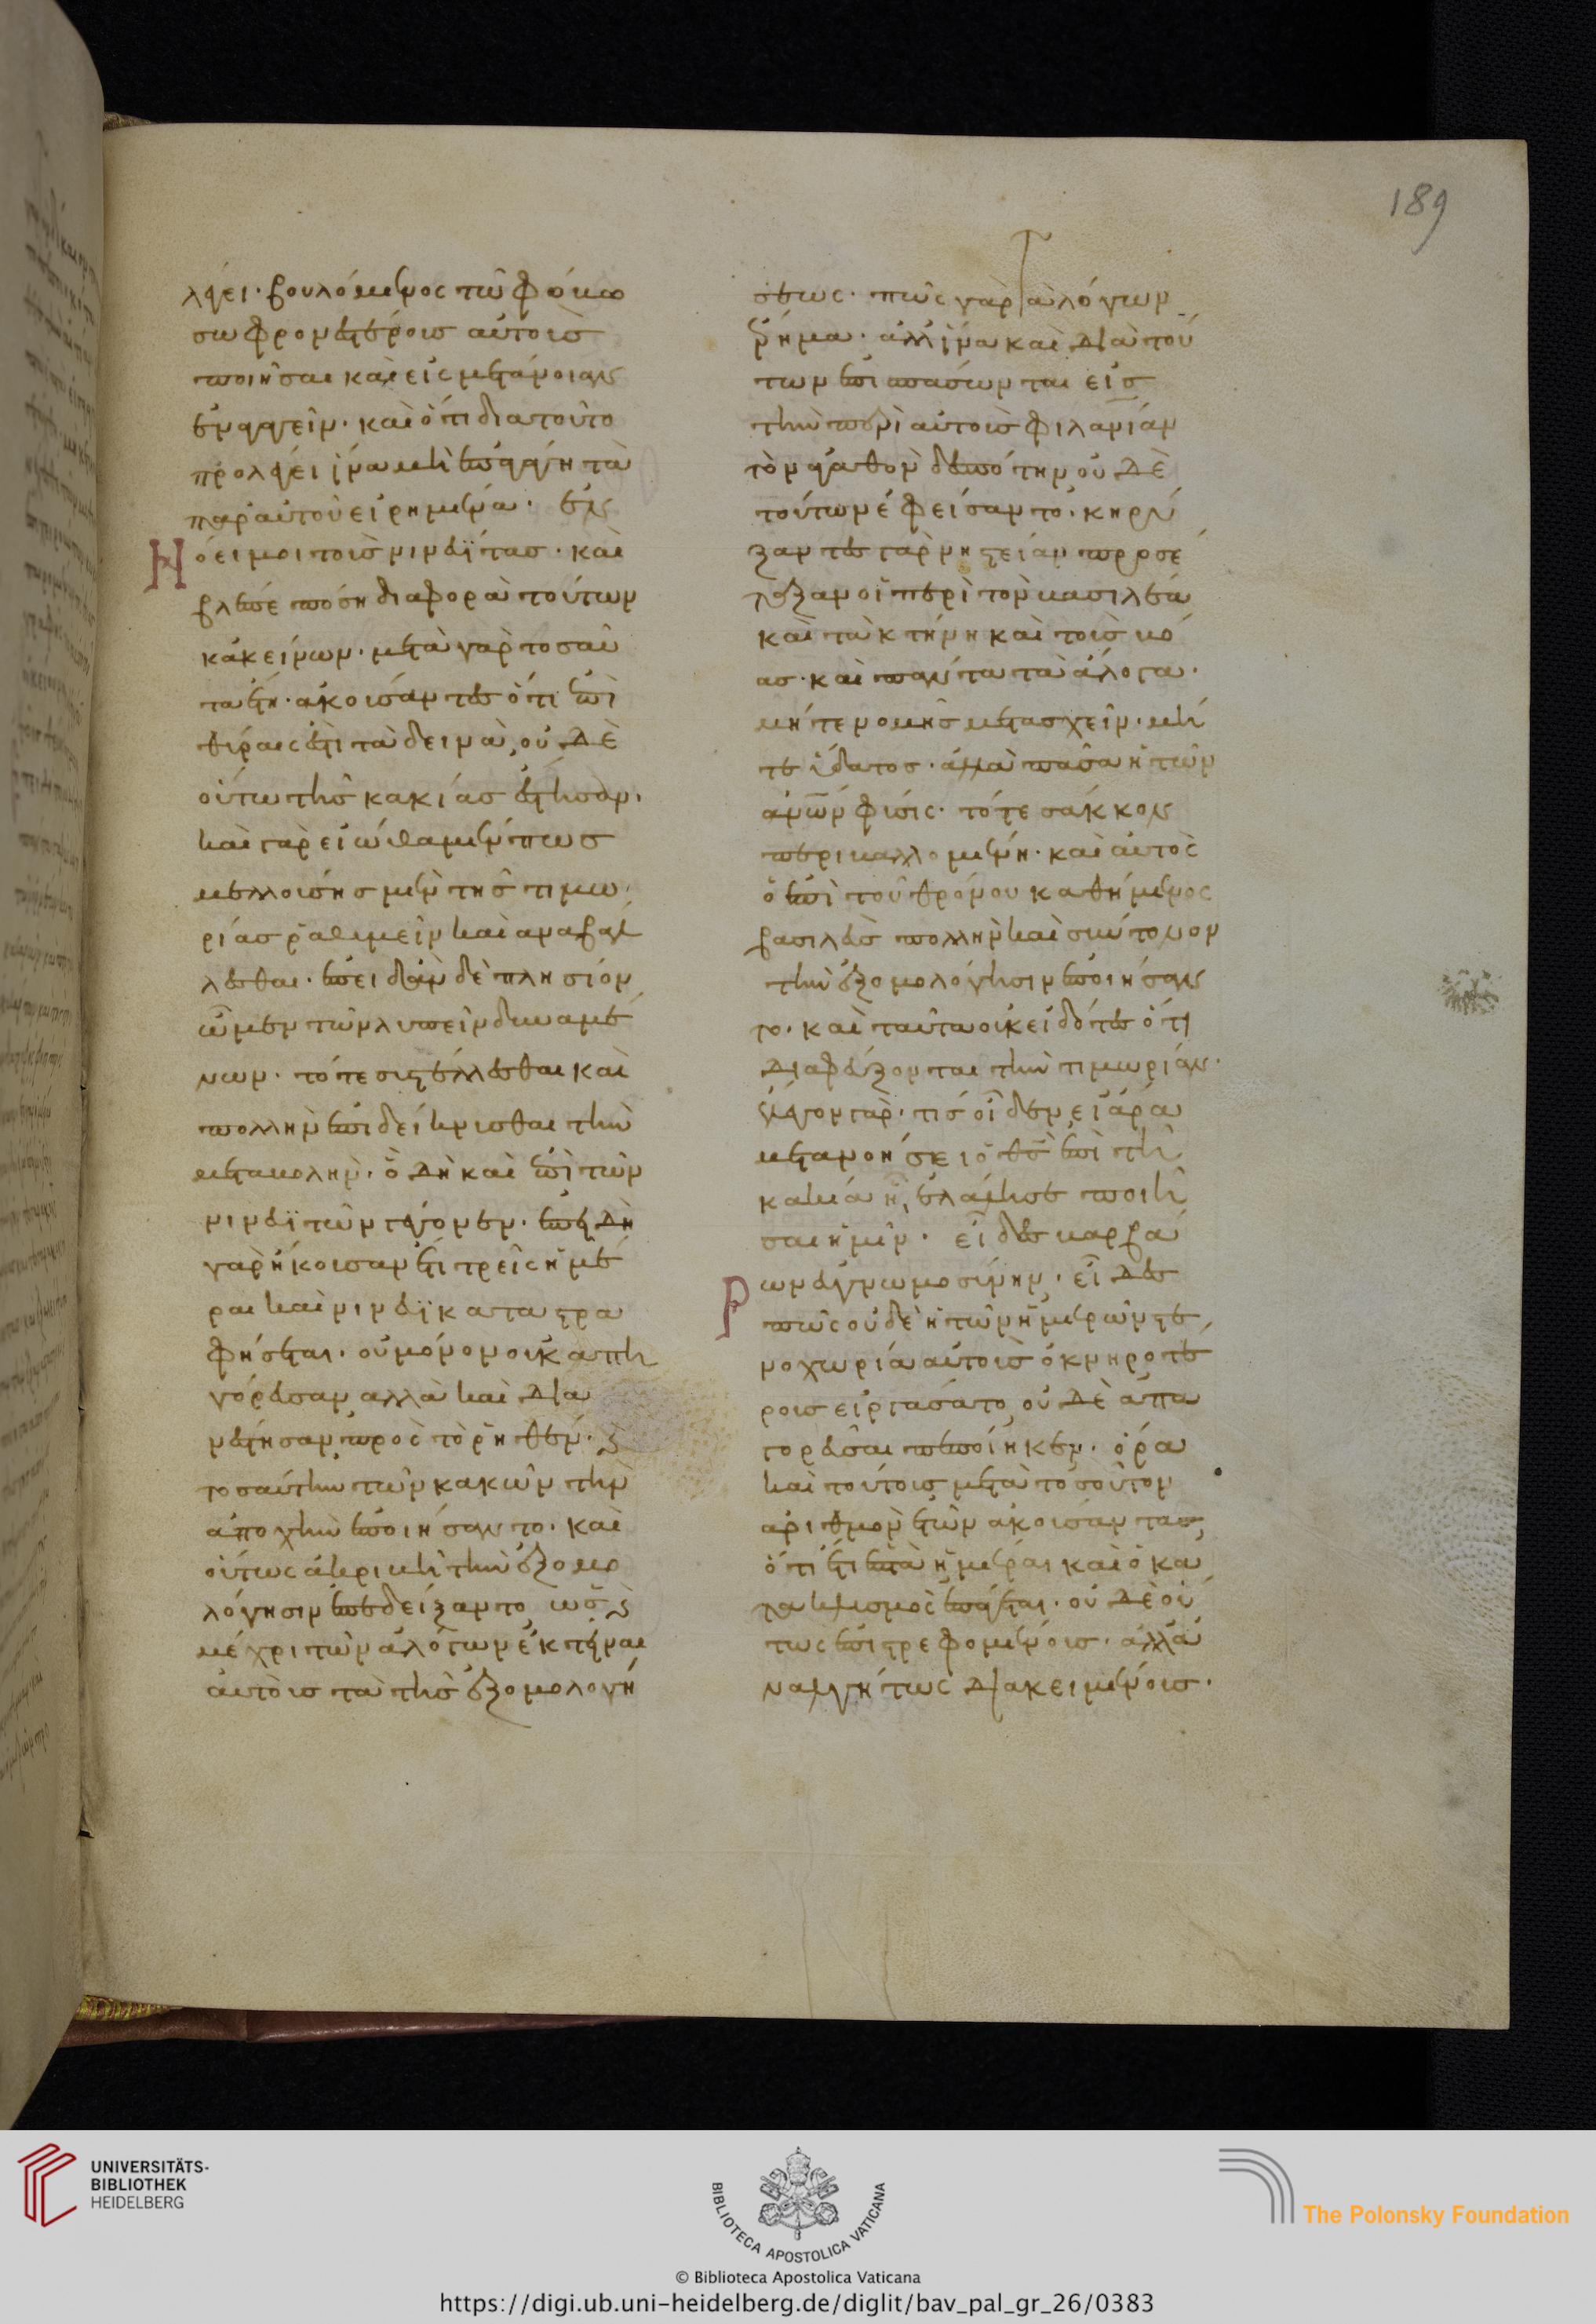 189
λέγει· βουλόμενος τῷ φόβω
σωφρονεστέρους αὐτοὺς
ποιῆσαι καὶ εἰς μετάνοιαν
ἐναγαγεῖν· καὶ ὅτι διατοῦτο
προλέγει ἵνα μὴ ἐπαγάγη τὰ
παρ' αὐτοῦ εἰρημένα·
Νόει μοι τοὺς νινευΐτας· καὶ
βλέπε πόση διαφορὰ τούτων
κἀκείνων· μετὰ γὰρ τοσαῦ
τα ἔτη· ἀκούσαντες ὅτι ἐπὶ
θύραις ἐστὶ τὰ δεινὰ, οὐδὲ
οὕτω τῆς κακίας ἀπέστησαν·
καὶ γὰρ εἰώθαμέν πως
μελλούσης μὲν τῆς τιμω
ρίας ῥαθυμεῖν καὶ αναβάλ
λεσθαι· ἐπειδὰν δὲ πλησίον
ὦμεν τῶν λυπεῖν δυναμέ
νων· τότε συστέλλεσθαι καὶ
πολλὴν ἐπιδείκνυσθαι τὴν
μεταβολήν· ὃ δὴ καὶ ἐπὶ τῶν
νινευϊτῶν γέγονεν· ἐπειδὴ
γὰρ ἤκουσαν ἔτι τρεῖς ἡμέ
ραι καὶ νινευῒ καταστρα
φήσεται· οὐ μόνον οὐκ ἀπη
γόρευσαν αλλὰ καὶ δια
νέστησαν πρὸς τὸ ῥηθέν· καὶ
τοσαύτην τῶν κακῶν τὴν
ἀποχὴν ἐποιήσαντο· καὶ
οὕτως ἀκριβῆ τὴν ἐξομο
λόγησιν ἐπεδείξαντο, ὡς καὶ
μέχρι τῶν ἀλόγων ἐκτεῖναι
αὐτοὺς τὰ τῆς ἐξομολογή
σεως· πῶς γὰρ αλόγων
ῥῆμα· ἀλλ' ἵνα καὶ διὰ τού
των ἐπισπάσωνται εἰς
τὴν περὶ αὐτοὺς φιλανίαν
τὸν ἀγαθὸν δεσπότην, οὐδὲ
τούτων ἐφείσαντο· κηρύ
ξαντες γὰρ νηστείαν προσέ
ταξαν οἱ περὶ τὸν βασιλέα
καὶ τὰ κτήνη καὶ τοὺς βό
ας· καὶ πάντα τὰ ἄλογα·
μήτε νομῆς μετασχεῖν· μή
τε ὕδατος· ἀλλὰ πᾶσα ἡ τῶν
ανων φύσις· τότε σάκκον
περιβαλλομένη· καὶ αὐτὸς
ὁ ἐπὶ τοῦ θρόνου καθήμενος
βασιλεὺς πολλὴν καὶ σύντονον
τὴν ἐξομολόγησιν ἐποιήσαν
το· καὶ ταῦτα οὐκ εἰδότες ὅτι
διαφεύξονται τὴν τιμωρίαν·
ἔλεγον γὰρ· τίς οἶδεν εἰ ἄρα
μετανοήσει ὁ θς ἐπὶ τῆ
κακία ἧ, ἐλάλησε ποιῆ
σαι ἡμῖν· εἶδες βαρβά
ρων εὐγνωμοσύνην· εἶδες
πῶς οὐδὲ ἡ τῶν ἡμερῶν στε
νοχωρία αὐτοὺς ὀκνηροτέ
ρους εἰργάσατο, οὐδὲ ἀπα
γορεῦσαι πεποίηκεν· ὅρα
καὶ τούτους μετὰ τοσοῦτον
ἀριθμὸν ἐτῶν ἀκούσαντας,
ὅτι ἔτι ἑπτὰ ἡμέραι καὶ ὁ κα
τακλυσμὸς ἐπάγεται· οὐδὲ οὕ
τως ἐπιστρεφομένους· ἀλλ' ἀ
ναλγήτως διακειμένους·
UNIVERSITÄTS-
BIBLIOTHEK
HEIDELBERG
BIBLIOTECA APOSTOLICA VATICANA
The Polonsky Foundation
© Biblioteca Apostolica Vaticana
https://digi.ub.uni-heidelberg.de/diglit/bav_pal_gr_26/0383